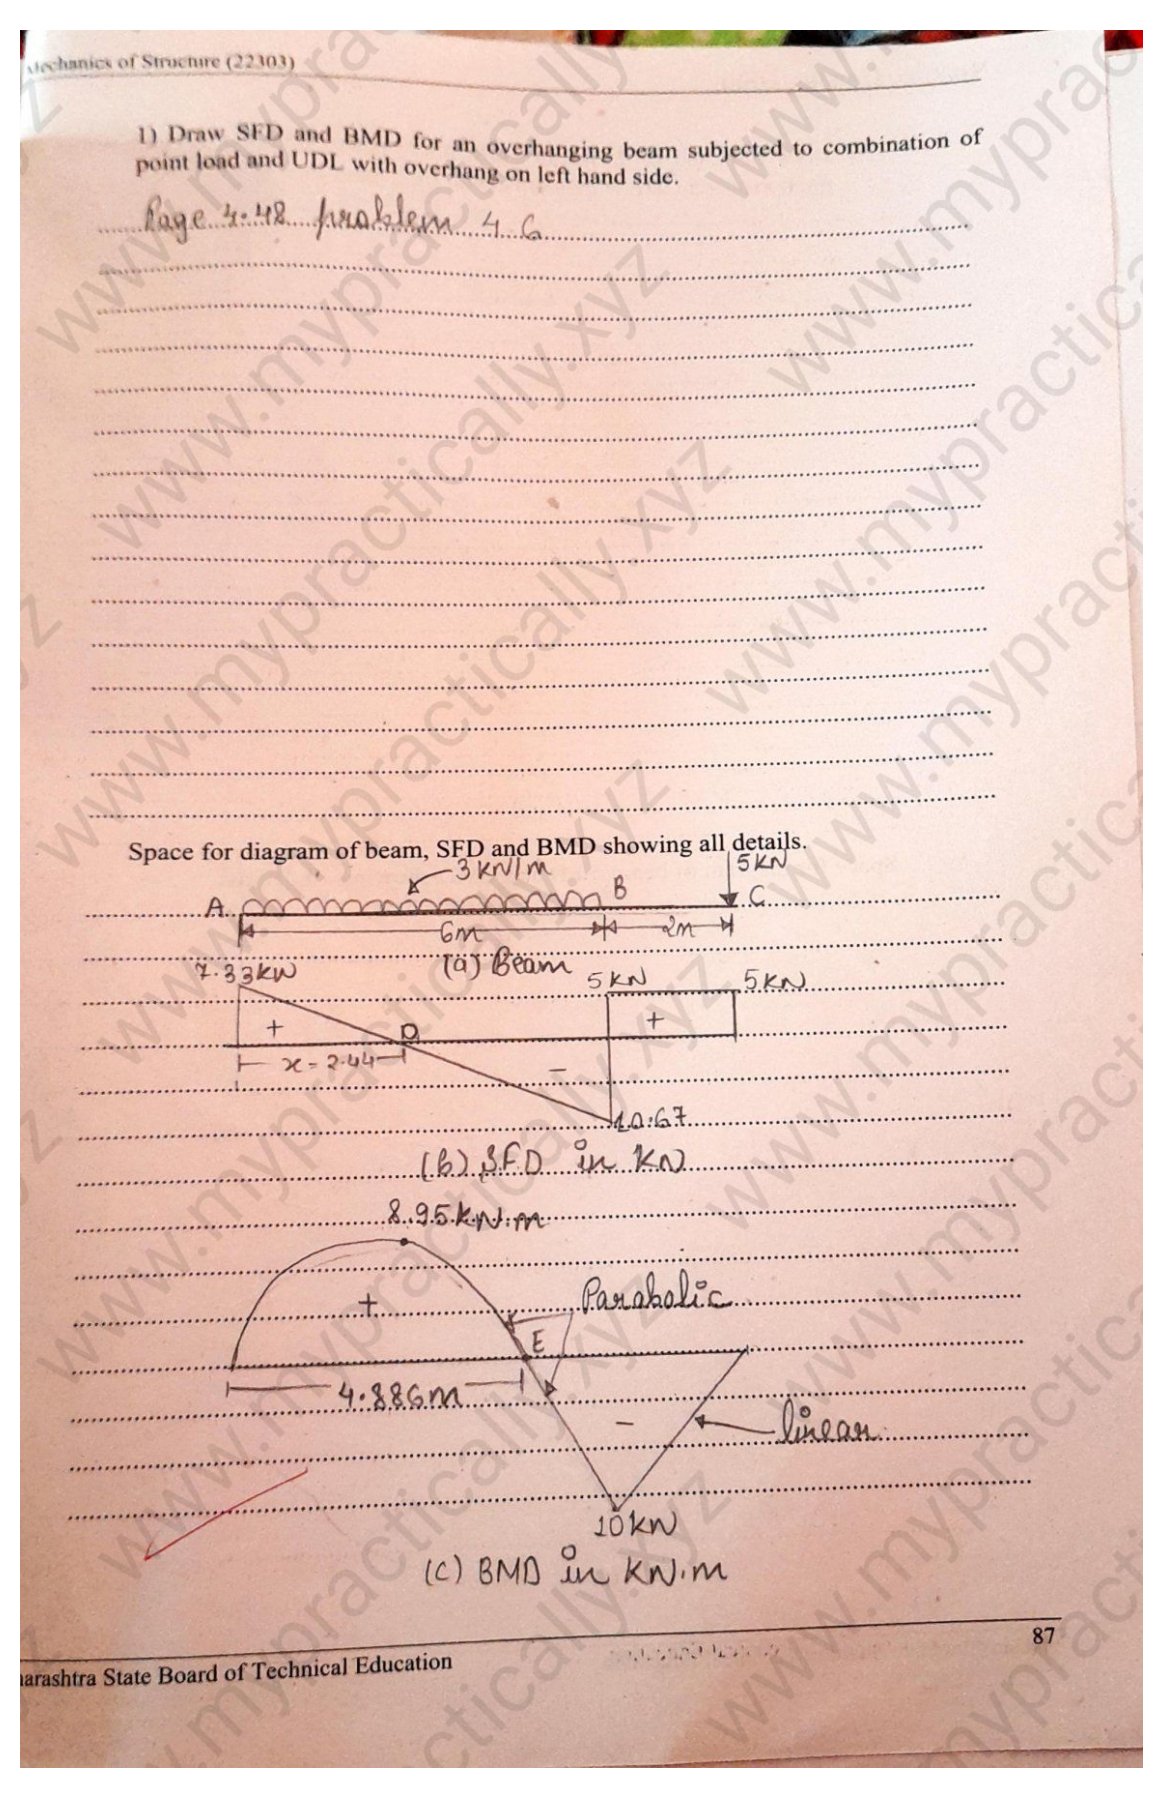 Mechanics of Structure (22303)
1) Draw SFD and BMD for an overhanging beam subjected to combination of
point load and UDL with overhang on left hand side.
Page 4.48 problem 4.6
Space for diagram of beam, SFD and BMD showing all details.
3 KN/m
5KN
A
B
C
6m
2m
(a) Beam
7.33KN
5KN
5KN
+
D
+
x = 2.44
-
10.67
(b) SFD in KN
8.95KN.m
+
Parabolic
E
4.886m
-
linear
10KN
(C) BMD in KN.m
87
arashtra State Board of Technical Education
www.mypractically.xyz